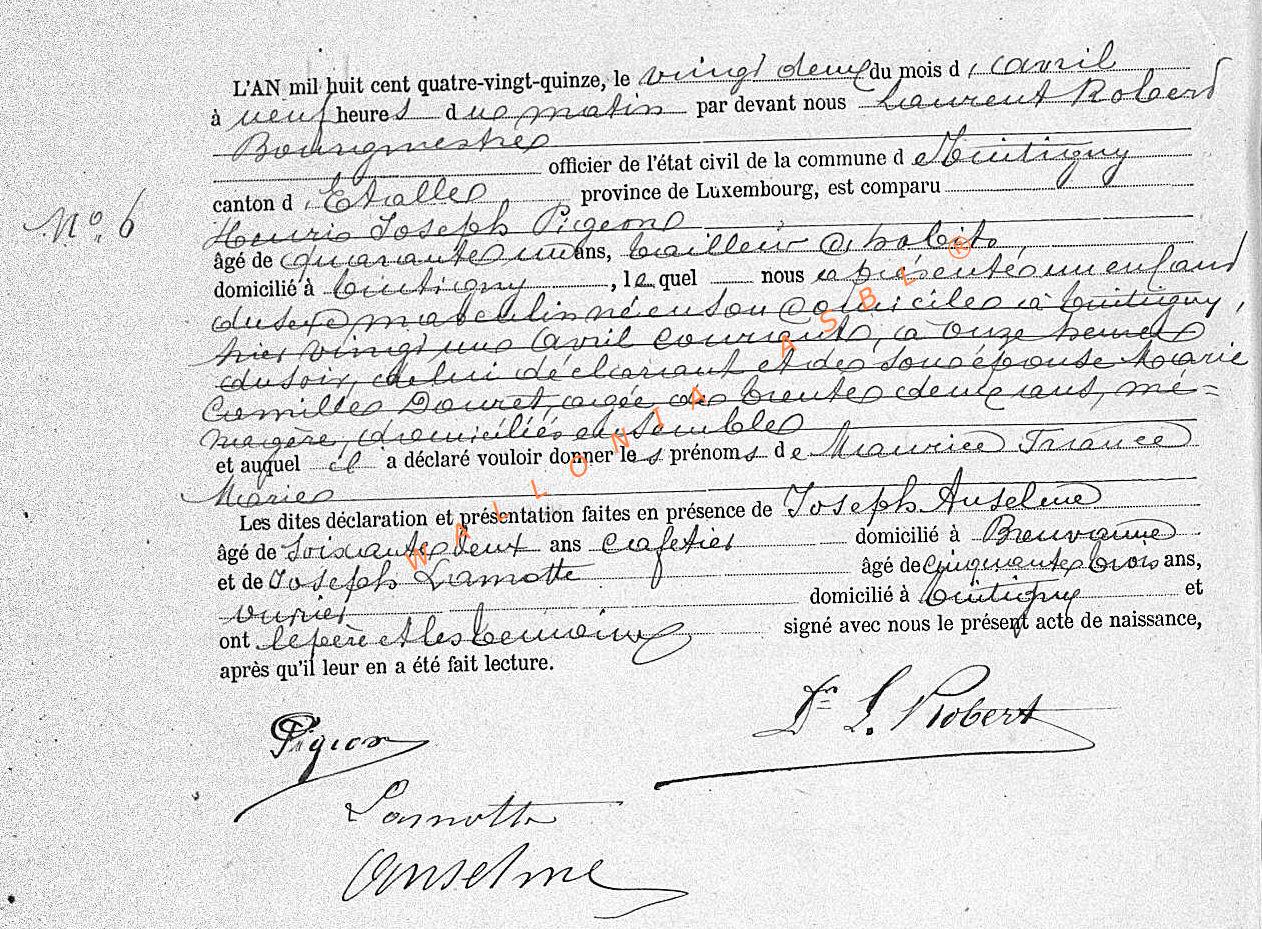 L'AN mil huit cent quatre-vingt-quinze, le vingt deux du mois d'avril
à neuf heures du matin par devant nous Laurent Robert
Bourgmestre
officier de l'état civil de la commune de Tintigny
canton d'Etalle province de Luxembourg, est comparu
N° 6
Henri Joseph Pigeon
âgé de quarante un ans, tailleur d'habits
domicilié à Tintigny, lequel nous a présenté un enfant
du sexe masculin né en son domicile à Tintigny,
hier vingt un avril courant, à onze heures
du soir, de lui déclarant et de son épouse Marie
Camille Douret, agée de trente deux ans, mé=
nagère, domiciliés ensemble
et auquel il a déclaré vouloir donner les prénoms de Maurice France
Marie
Les dites déclaration et présentation faites en présence de Joseph Anselme
âgé de soixante deux ans cafetier domicilié à Breuvanne
et de Joseph Lamotte âgé de cinquante trois ans,
ouvrier domicilié à Tintigny et
ont le père et les témoins signé avec nous le présent acte de naissance,
après qu'il leur en a été fait lecture.
Dr L. Robert
Pigeon
Lamotte
Anselme
WALLONIA ASBL ®